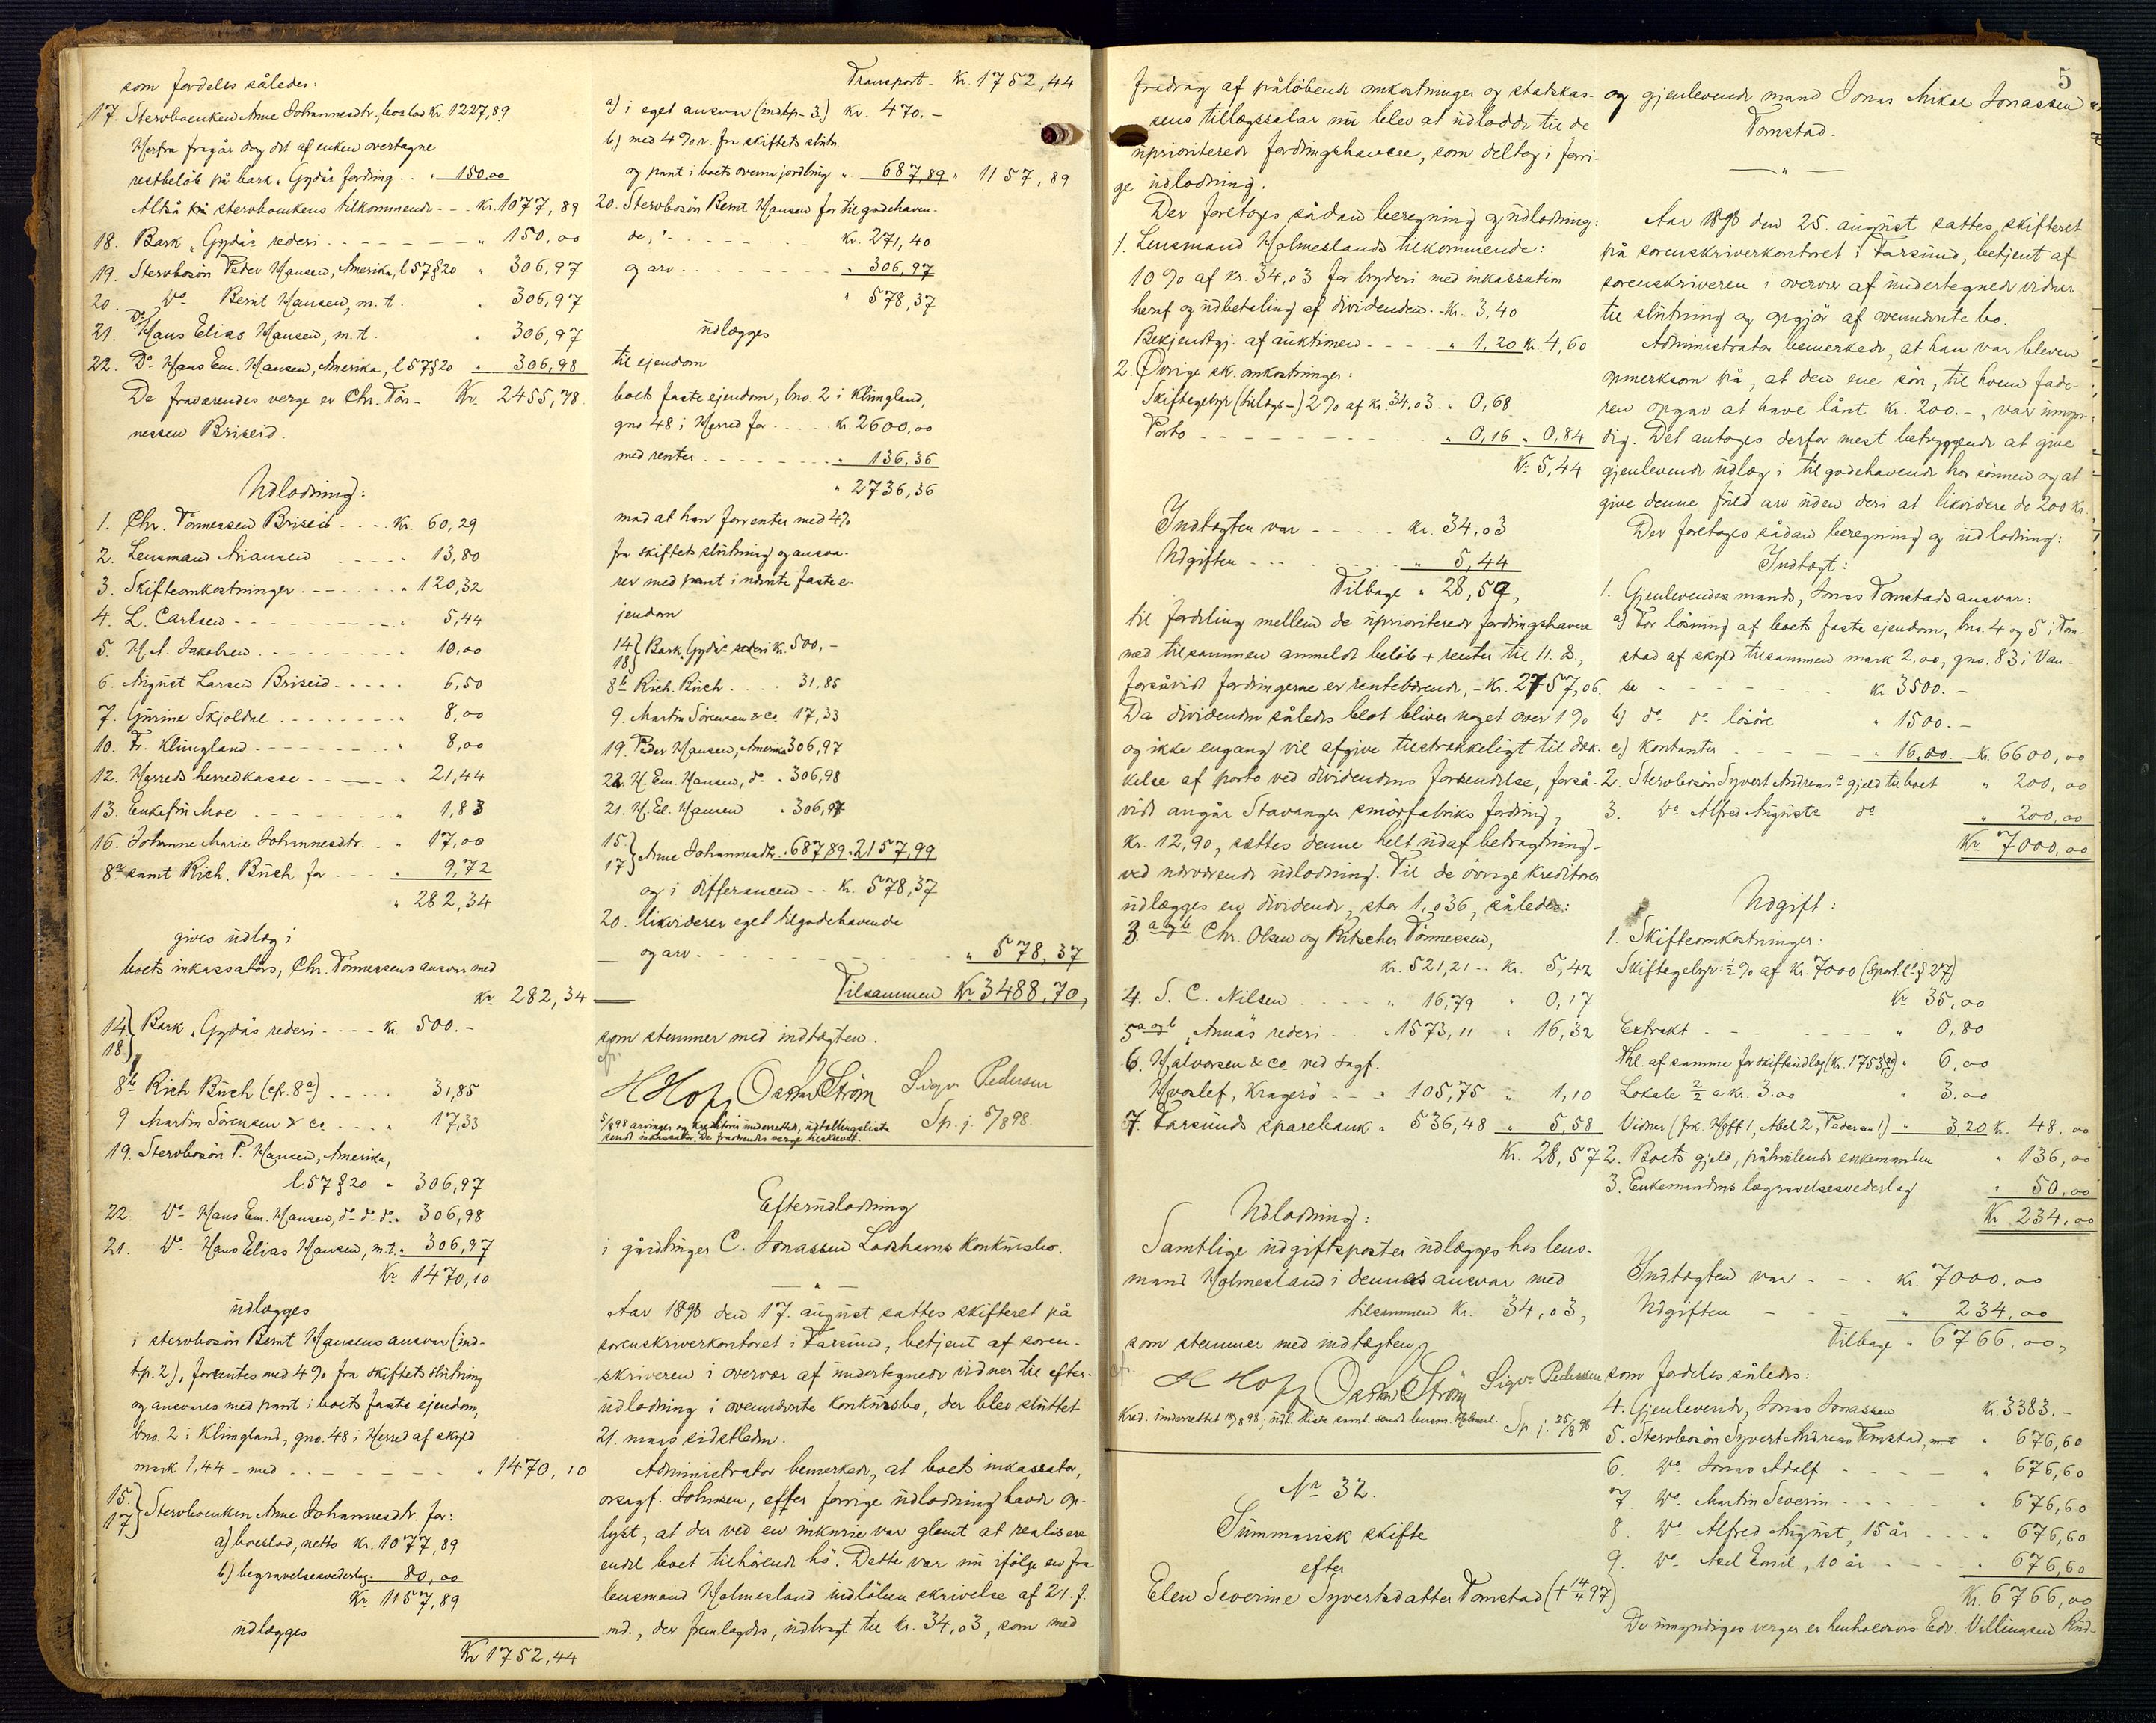 som fordeles således:
17. Stervboenken Anne Johannesdtr., boslod Kr. 1227,89
Herfra fragår dog det af enken overtagne
restbeløb på bark „Gyda's fordring . . " 150,00
Altså på stervboenkens tilkommende - - - Kr. 1077,89
18. Bark „Gyda's rederi - - - - - " 150,00
19. Stervbosön Peder Hansen, Amerika, l 57 § 20 " 306,97
20. Do Bernt Hansen, m.t. " 306,97
21. Do Hans Elias Hansen, m.t. " 306,97
22. Do Hans Em. Hansen, Amerika, l 57 § 20 " 306,98
De fraværendes verge er Chr. Tön- Kr. 2455,78
nessen Briseid.
Udlodning:
1. Chr. Tönnessen Briseid - - - - Kr. 60,29
2. Lensmand Ariansen - - - - - 13,80
3. Skifteomkostninger - - - - - - " 120,32
4. L. Carlsen - - - - - - - - - - " 5,44
5. H. A. Jakobsen - - - - - - - " 10,00
6. August Larsen Briseid - - - - - 6,50
7. Gurine Skjoldal - - - - - - - " 8,00
10. Fr. Klungland - - - - - - - - " 8,00
12. Herreds herredkasse - - - - - " 21,44
13. Enkefru Moe - - - - - - - - " 1,83
16. Johanne Marie Johannesdtr. - - " 17,00
8a samt Rich. Buch for - - - - " 9,72
" 282,34
gives udlæg i
boets inkassators, Chr. Tönnessens ansvar med
Kr. 282,34
14 } Bark „Gyda's rederi - - - - Kr. 500.-
18 }
8b Rich Buch (cfr. 8a) - - - - - 31,85
9 Martin Sörensen & co - - - - " 17,33
19. Stervbosön P. Hansen, Amerika,
l. 57 § 20 " 306,97
22. Do Hans Em. Hansen, do do do " 306,98
21. Do Hans Elias Hansen, m.t. " 306,97
Kr. 1470,10
udlægges
i stervbosön Bernt Hansens ansvar (ind-
t.p. 2), forrentes med 4 % fra skiftets slutning
og ansvares med pant i boets faste ejendom,
bno. 2 i Klungland, gno. 48 i Herred af skyld
mark 1,44 - med - - - - - - - " 1470,10
15. } Stervboenken Anne Johannesdtr. for:
17 }
a) boeslod, netto Kr. 1077,89
b) begravelsesvederlag " 80,00
Kr. 1157,89
udlægges
Kr 1752,44
Transport - Kr. 1752,44
a) i eget ansvar (indtp. 3.) Kr. 470.-
b) med 4 % r. fra skiftets slutn.
og pant i boets ovennv. jordbrug " 687,89 " 1157,89
20. Stervbosön Bernt Hansen for tilgodehaven-
de, - - - - - - - Kr. 271,40
og arv - - - - - - - " 306,97
" 578,37
udlægges
til ejendom
boets faste ejendom, bno. 2 i Klungland,
gno 48 i Herred for - - - - - Kr. 2600,00
med renter - - - - - - - " 136,36
" 2736,36
mod at han forrenter med 4 %
fra skiftets slutning og ansva-
rer med pant i nævnte faste e-
jendom
14 } Bark „Gyda's rederi Kr. 500,-
18 }
8b Rich. Buch - - - - 31,85
9. Martin Sörensen & co. 17,33
19. Peder Hansen, Amerika 306,97
22. H. Em. Hansen, do " 306,98
21. H. El. Hansen " 306,97
15. } Anne Johannesdtr. " 687,89 " 2157,99
17 }
og i differancen - - Kr. 578,37
20. likviderer eget tilgodehavende
og arv - - - - - - - - - - " 578,37
Tilsammen Kr 3488,70,
som stemmer med indtægten.
cfr.
H Hoff Oscar Ström Sigv Pedersen
5/8 98 arvinger og kreditorer underrettet, udtallingsliste
sendt inkassator. De fraværendes verge tilskrevet.
Sp. j. 5/8 98.
Efterudlodning
i gårdbruger C. Jonassen Lodshavns Konkursbo.
Aar 1898 den 17. august sattes skifteret på
sorenskriverkontoret i Farsund, betjent af soren-
skriveren i overvær af undertegnede vidner til efter-
udlodning i ovennævnte konkursbo, der blev sluttet
21. mars sidstleden.
Administrator bemerkede, at boets inkassator,
orsagf. Johnsen, efter forrige udlodning havde op-
lyst, at der ved en inkurie var glemt at realisere
endel boet tilhørende hö. Dette var nu ifølge en fra
lensmand Holmesland indløben skrivelse af 21. f.
md., der fremlagdes, udbragt til Kr. 34,03, som med
5
fradrag af påløbende omkostninger og statskas-
sens tillægssalær nu blev at udlodde til de
uprioriterede fordringshavere, som deltog i forri-
ge udlodning.
Der foretoges sådan beregning og udlodning:
1. Lensmand Holmeslands tilkommende:
10 % af Kr. 34,03 for bryderi med inkassation
heraf og udbetaling af dividenden - Kr. 3,40
Bekjendtgj. af auktionen - - - - " 1,20 Kr. 4,60
2. Øvrige sk. omkostninger:
Skiftegebyr (tillægs-) 2 % af Kr. 34,03 " 0,68
Porto - - - - - - - - - - " 0,16 " 0,84
Kr. 5,44
Indtægten var - - - - - Kr. 34,03
Udgiften - - - - - - - - " 5,44
Tilbage " 28,59,
til fordeling mellem de uprioriterede fordringshavere
med tilsammen anmeldt beløb + renter til 11. d.,
forsåvidt fordringerne er rentebærende, - Kr. 2757,06.
Da dividenden således blot bliver noget over 1 %
og ikke engang vil afgive tilstrækkeligt til dæk-
kelse af porto ved dividendens forsendelse, forså-
vidt angår Stavanger smørfabriks fordring,
Kr. 12,90, sættes denne helt ud af betragtning
ved nærværende udlodning. Til de øvrige kreditorer
udlægges en dividende, stor 1,036, således:
3. a og b Chr. Olsen og Pitscher Tönnessen,
Kr. 521,21 - - Kr. 5,42
4. S. C. Nilsen - - - - - " 16,79 " 0,17
5 a og b „Anna's rederi - " 1573,11 " 16,32
6. Halvorsen & co. ved sagf.
Horslef, Kragerø - - - " 105,75 " 1,10
7. Farsunds sparebank " 536,48 " 5,58
Kr. 28,57
Udlodning:
Samtlige udgiftsposter udlægges hos lens-
mand Holmesland i dennes ansvar med
tilsammen Kr. 34,03,
som stemmer med indtægten.
cfr.
H Hoff Oscar Ström Sigv. Pedersen
Kred. underrettet 18/8 98; udl. liste saml. sendt lensm. Holmesl.
Sp. j. 25/8 98
No 32.
Summarisk skifte
efter
Elen Severine Syvertsdatter Tomstad († 14/4 97)
og gjenlevende mand Jonas Mikal Jonassen
Tomstad.
Aar 1898 den 25. august sattes skifteret
på sorenskriverkontoret i Farsund, betjent af
sorenskriveren i overvær af undertegnede vidner
til slutning og opgjør af ovennævnte bo.
Administrator bemerkede, at han var bleven
opmerksom på, at den ene sön, til hvem fade-
ren opgav at have lånt Kr. 200.-, var umyn-
dig. Det antoges derfor mest betryggende at give
gjenlevende udlæg i tilgodehavende hos sønnen og at
give denne fuld arv uden deri at likvidere de 200 Kr.
Der foretoges sådan beregning og udlodning:
Indtægt:
1. Gjenlevendes mands, Jonas Tomstads ansvar:
a) For løsning af boets faste ejendom, bno. 4 og 5 i Tom-
stad af skyld tilsammen mark 2.00, gno. 83 i Van-
se - - - - - - - Kr. 3500.-
b) do do løsøre " 1500.-
c) Kontanter - - - - - " 1600.- Kr. 6600,00
2. Stervbosön Syvert Andreas's gjeld til boet " 200,00
3. Do Alfred August's do " 200,00
Kr. 7000,00
Udgift:
1. Skifteomkostninger:
Skiftegebyr: ½ % af Kr. 7000 (Sport. l. § 27)
Kr. 35,00
Extrakt - - - - - - - " 0,80
Thl. af samme for skifteudlæg (Kr. 1753,) " 6,00
Lokale 2/2 a Kr. 3.00 " 3.00
Vidner (frk. Hoff 1, Abel 2, Pedersen 1) " 3,20 Kr. 48,00
2. Boets gjeld, påhvilende enkemanden " 136,00
3. Enkemandens begravelsesvederlag " 50,00
Kr. 234.00
Indtægten var - - - Kr. 7000.00
Udgiften - - - - " 234.00
Tilbage " 6766.00,
som fordeles således:
4. Gjenlevende, Jonas Jonassen Kr. 3383.-
5. Stervbosön Syvert Andreas Tomstad, m.t. " 676,60
6. Do Jonas Adolf - - - - " 676,60
7. Do Martin Severin - - - - " 676,60
8. Do Alfred August, 15 år - - - " 676,60
9. Do Axel Emil, 10 år - - - - " 676,60
Kr. 6766,00
De umyndiges verger er henholdsvis Edv. Villumsen Rud-